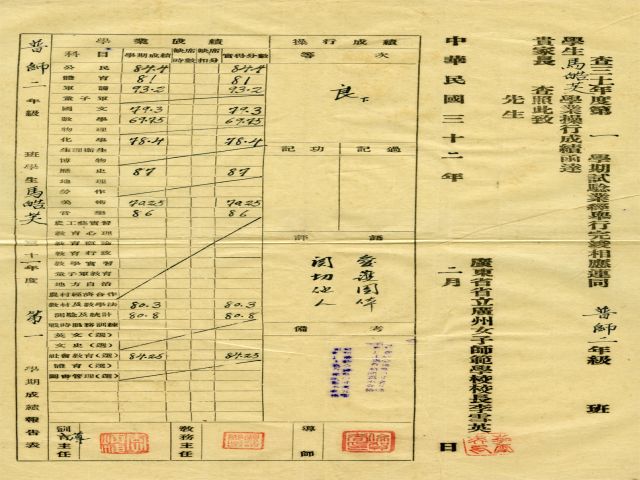 查三十一年度第一學期試驗業經舉行完竣相應連同 普師二年級 班
學生馬皓芙學業操行成績函達
貴家長 查照此致
先生
中華民國三十二年 二月 日
廣東省省立廣州女子師範學校校長李雪英
普師二年級 班學生馬皓芙 三十一年度第一學期成績報告表
學業成績
科目 學期成績 缺席時數 缺席扣分 實得分數
公民 84.4 84.4
體育 81 81
軍訓 93.2 93.2
童子軍
國文 79.3 79.3
數學 69.75 69.75
物理
化學 78.4 78.4
生理衛生
博物
歷史 87 87
地理
勞作
美術 79.25 79.25
音樂 86 86
農工藝實習
教育心理
教育概論
教育行政
教學實習
童子軍教育
地方自治
農村經濟合作
教材及教學法 80.3 80.3
測驗及統計 80.8 80.8
戰時服務訓練
英文(選)
文史(選)
社會教育(選) 84.25 84.25
體育(選)
圖書管理(選)
操行成績
等次
良下
記功 記過
評語
愛護團体
關切他人
備考
訓育主任
教務主任
導師